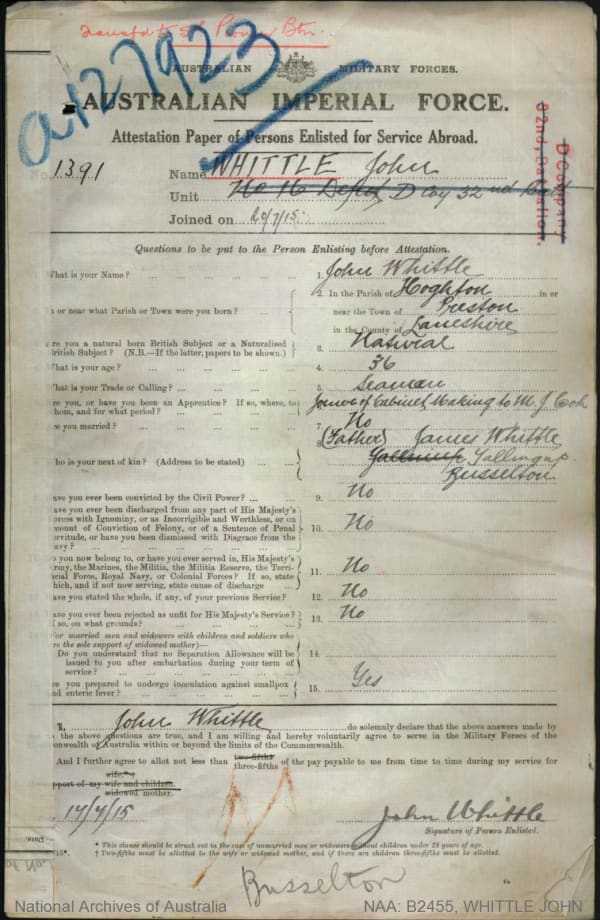 Transfd to 5th Pioneer Btn.
a127923
AUSTRALIAN MILITARY FORCES.
AUSTRALIAN IMPERIAL FORCE.
Attestation Paper of Persons Enlisted for Service Abroad.
No. 1391 Name WHITTLE John
Unit No 16 Depot D Coy 32nd Batt
D Company
32nd Battalion.
Joined on 20/7/15
Questions to be put to the Person Enlisting before Attestation.
What is your Name? ... 1. John Whittle
2. In the Parish of Hoghton in or
n or near what Parish or Town were you born? ... near the Town of Preston
in the County of Lancshire
re you a natural born British Subject or a Naturalised
British Subject? (N.B.—If the latter, papers to be shown.) 3. Natural
hat is your age? ... 4. 36
hat is your Trade or Calling? ... 5. Seaman
re you, or have you been an Apprentice? If so, where, to
hom, and for what period? ... Joiner & Cabinet Making to M. J.
re you married? ... 7. No
8. (Father) James Whittle
ho is your next of kin? (Address to be stated) ... Yallingup
Busselton
ave you ever been convicted by the Civil Power? ... 9. No
ave you ever been discharged from any part of His Majesty's
orces with Ignominy, or as Incorrigible and Worthless, or on
count of Conviction of Felony, or of a Sentence of Penal
ervitude, or have you been dismissed with Disgrace from the
avy? ... 10. No
o you now belong to, or have you ever served in, His Majesty's
rmy, the Marines, the Militia, the Militia Reserve, the Terri-
orial Force, Royal Navy, or Colonial Forces? If so, state
hich, and if not now serving, state cause of discharge 11. No
ave you stated the whole, if any, of your previous Service? 12. No
ave you ever been rejected as unfit for His Majesty's Service?
f so, on what grounds? ... 13. No
For married men and widowers with children and soldiers who
re the sole support of widowed mother)—
Do you understand that no Separation Allowance will be
issued to you after embarkation during your term of
service? ... 14.
re you prepared to undergo inoculation against smallpox
nd enteric fever? ... 15. Yes
I, John Whittle do solemnly declare that the above answers made by
the above questions are true, and I am willing and hereby voluntarily agree to serve in the Military Forces of the
onwealth of Australia within or beyond the limits of the Commonwealth.
And I further agree to allot not less than two-fifths three-fifths of the pay payable to me from time to time during my service for
wife.*†
pport of my wife and children.
widowed mother.
14/7/15
John Whittle
Signature of Person Enlisted.
Date.
* This clause should be struck out in the case of unmarried men or widowers without children under 18 years of age.
† Two-fifths must be allotted to the wife or widowed mother, and if there are children three-fifths must be allotted.
Busselton
National Archives of Australia
NAA: B2455, WHITTLE JOHN